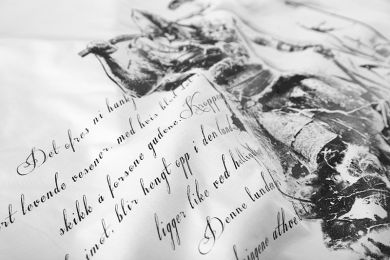 Det ofres ni hank
rt levende vesener, med hvis blod det
skikk å forsone gudene. Kroppe
imot, blir hengt opp i den lund
ligger like ved helled
Denne lunden
ingene athol